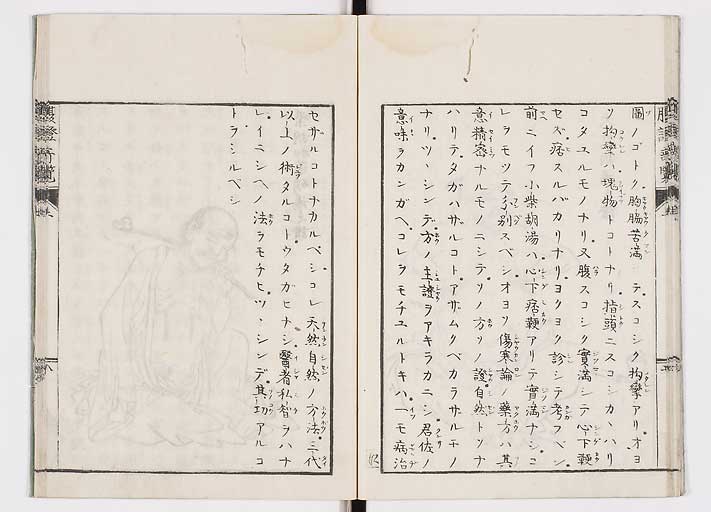 圖ノゴトク胸脇苦滿 テスコシク拘攣アリオヨ
ソ拘攣ハ塊物トコトナリ指頭ニスコシカヽハリ
コタユルモノナリ又腹スコシク實滿シテ心下鞕
セズ痞スルバカリナリヨクヨク診シテ考フベシ
前ニイフ小柴胡湯ハ心下痞鞕アリテ實滿ナシコ
レヲモツテ分別スベシオヨソ傷寒論ノ藥方ハ其
意精密ナルモノニシテソノ方ソノ證自然トツナ
ハリテタガハザルコトアザムクベカラサルモノ
ナリツヽシンデ方ノ主證ヲアキラカニシ君佐ノ
意味ヲカンガヘコレヲモチユルトキハ一モ病治
セザルコトナカルベシコレ天然自然ノ方法三代
以上ノ術タルコトウタガヒナシ醫者私智ヲハナ
レイニシヘノ法ヲモチヒツヽシンデ其功アルコ
トヲシルベシ
腹證奇覧